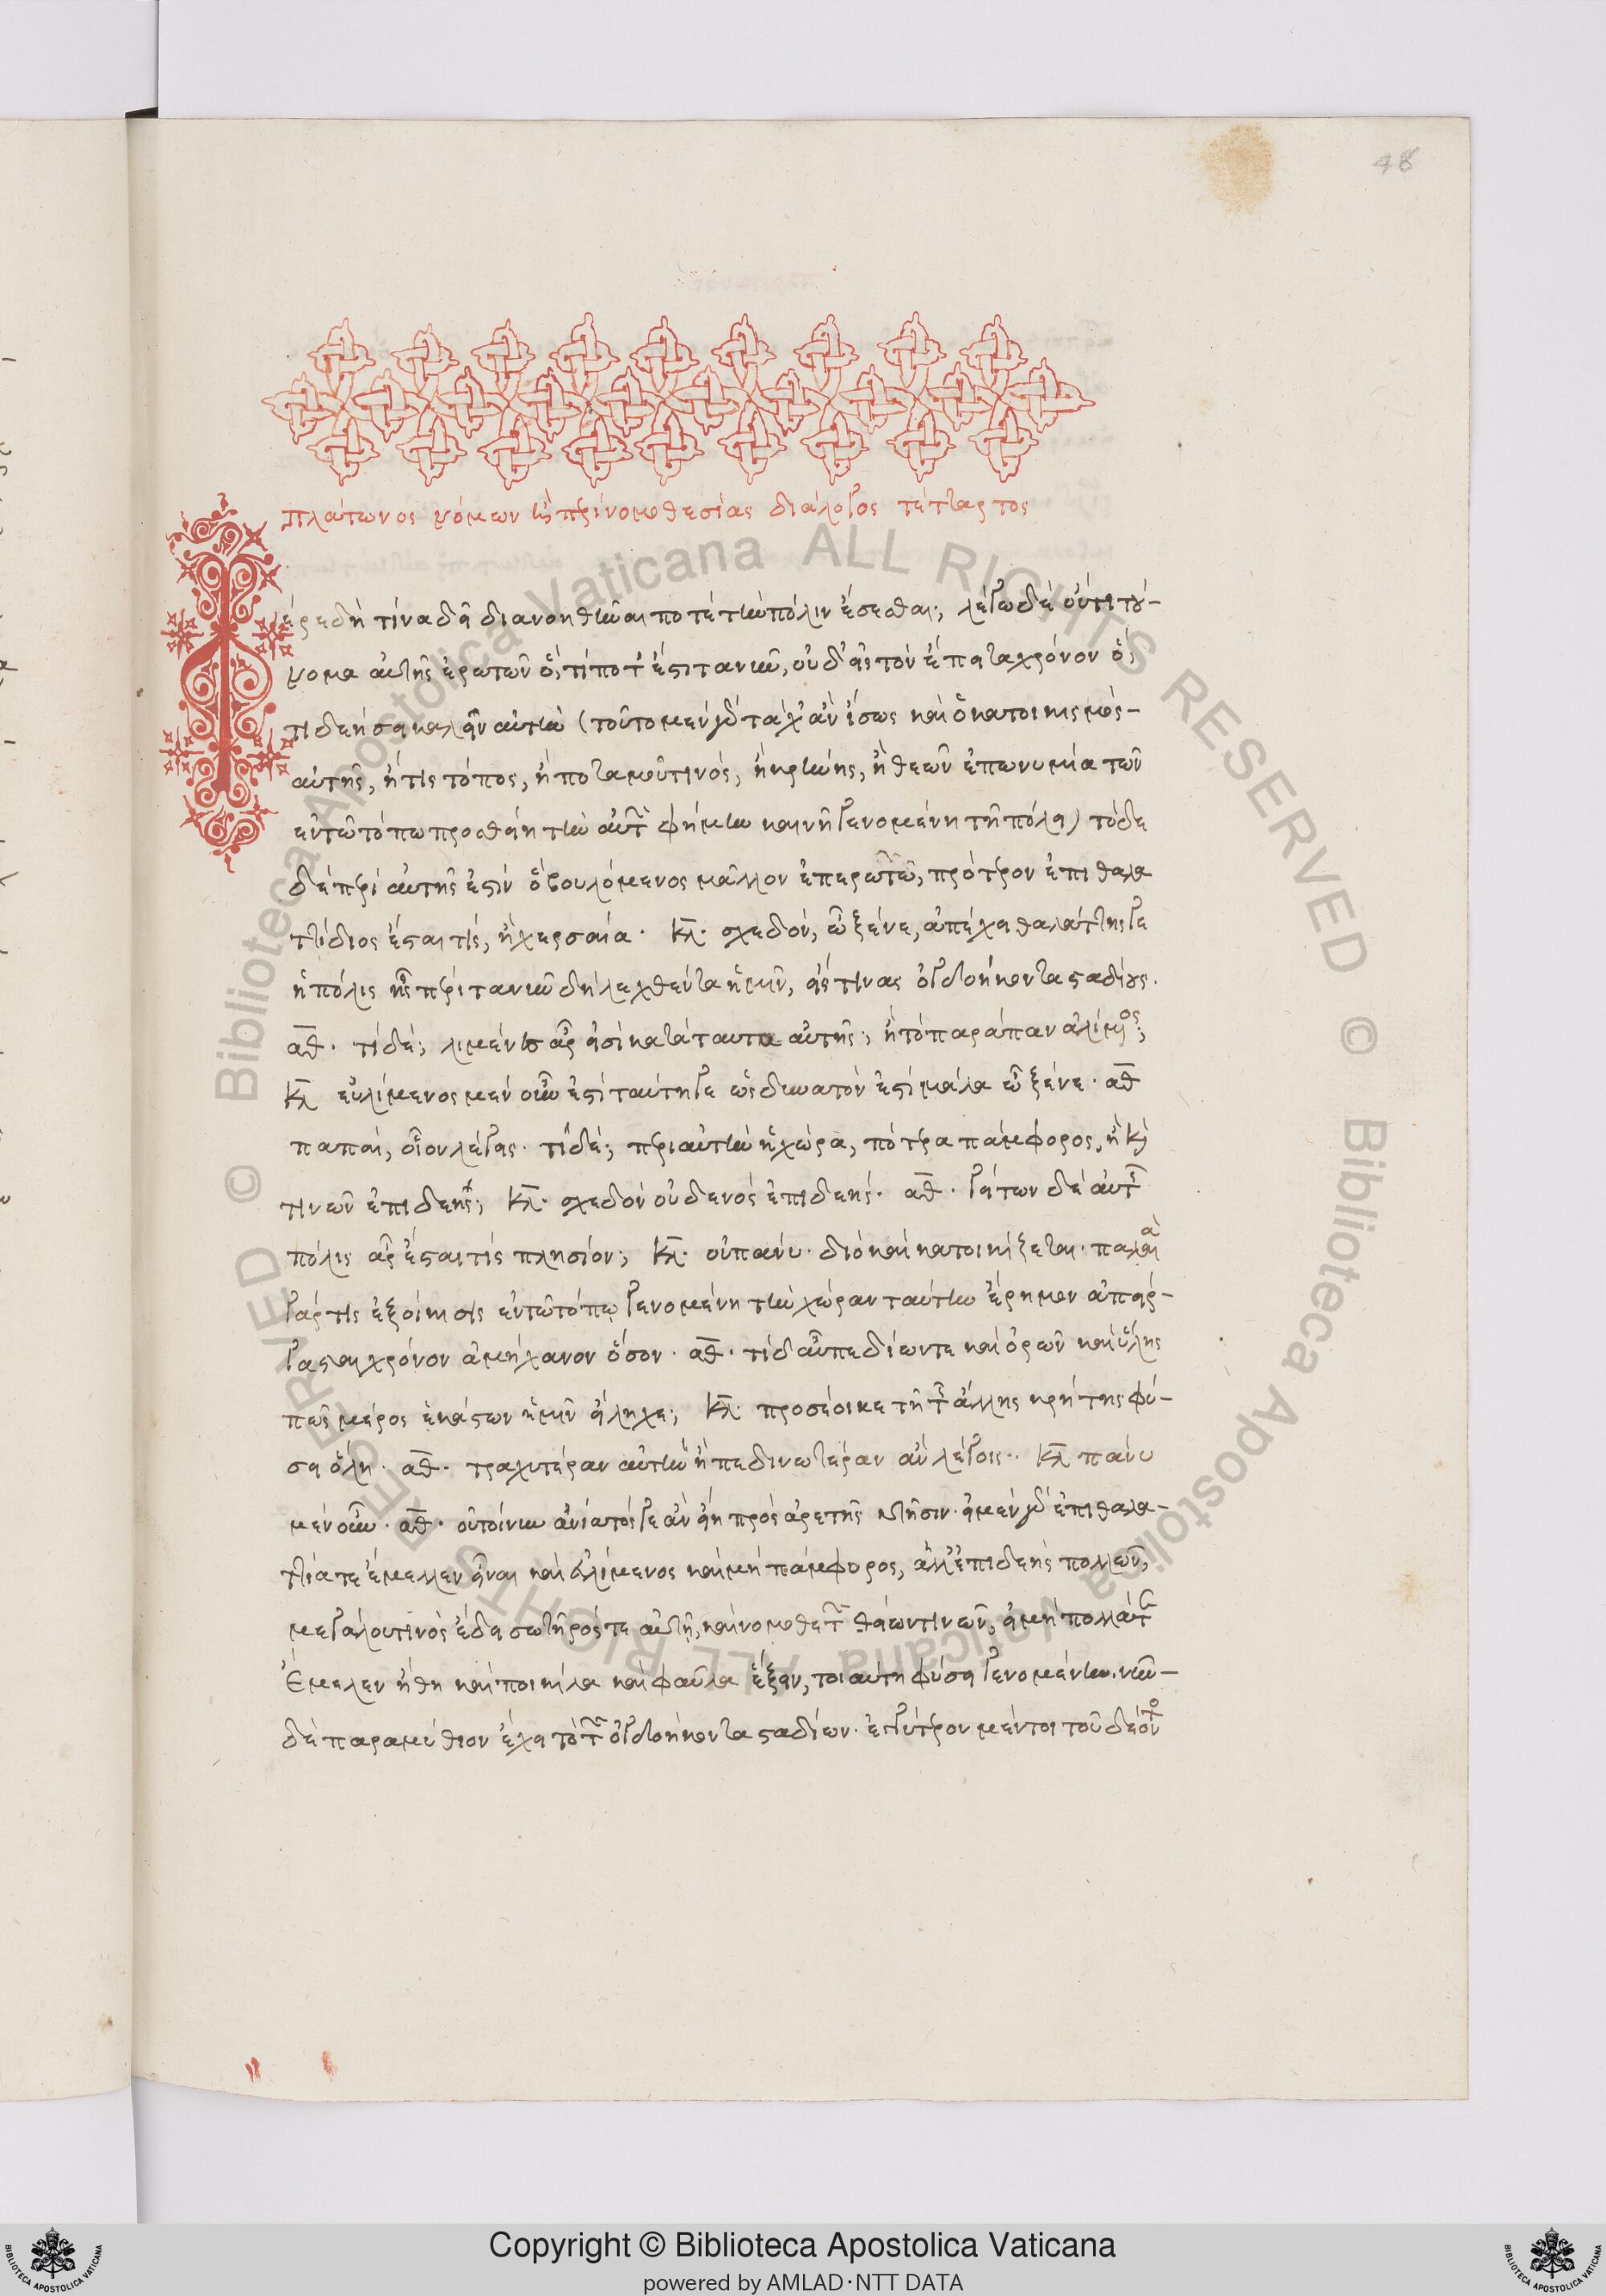 48
πλάτωνος νόμων ἢ περὶ νομοθεσίας διάλογος τέταρτος
έρε δὴ τίνα δεῖ διανοηθῆναι ποτὲ τὴν πόλιν ἔσεσθαι; λέγω δὲ οὔτι τού-
νομα αὐτῆς ἐρωτῶν ὅ, τί ποτ' ἐστὶ τανῦν, οὐδ' εἰς τὸν ἔπειτα χρόνον ὅ,
τι δεήσει καλεῖν αὐτὴν (τοῦτο μὲν γὰρ τάχ' ἂν ἴσως καὶ ὁ κατοικισμὸς-
αὐτῆς, ἤ τις τόπος, ἢ ποταμοῦ τινὸς, ἢ κρήνης, ἢ θεῶν ἐπωνυμία τῶν
ἐν τῶ τόπω προσθείη τὴν αὐτῶν φήμην καινῆ γενομένη τῆ πόλει) τόδε
δὲ περὶ αὐτῆς ἐστὶν ὃ βουλόμενος μᾶλλον ἐπερωτῶ, πρότερον ἐπιθαλα
ττίδιος ἔσται τίς, ἢ χερσαία. κλ. σχεδὸν, ὦ ξένε, ἀπέχει θαλάττης γε
ἡ πόλις ἧς πέρι τανῦν δὴ λεχθέντα ἡμῖν, εἴς τινας ὀγδοήκοντα σταδίους.
αθ. τί δέ; λιμένες ἆρ' εἰσὶ κατὰ ταυτα αὐτῆς; ἢ τὸ παράπαν ἀλίμενος;
κλ εὐλίμενος μὲν οὖν ἐστὶ ταύτη γε ὡς δυνατὸν ἐστὶ μάλα ὦ ξένε. αθ
παπαὶ, οἷον λέγεις. τί δέ; περὶ αὐτὴν ἡ χώρα, πότερα πάμφορος, ἢ καὶ
τινῶν ἐπιδεής; κλ. σχεδὸν οὐδενὸς ἐπιδεής. αθ. γείτων δὲ αὐτῆς
πόλις ἆρ' ἔσται τίς πλησίον; κλ. οὐ πάνυ. διὸ καὶ κατοικίζεται. παλαιὰ
γάρ τις ἐξοίκησις ἐν τῶ τόπω γενομένη τὴν χώραν ταύτην ἔρημον ἀπείρ-
γασται χρόνον ἀμήχανον ὅσον. αθ. τί δ' αὖ πεδίων τε καὶ ὀρῶν καὶ ὕλης
πῶς μέρος ἑκάστων ἡμῖν εἴληχε; κλ. προσέοικε τῆ τῆς ἄλλης κρήτης φύ-
σει ὅλη. αθ. τραχυτέραν αὐτὴν ἢ πεδινωτέραν ἂν λέγοις. κλ πάνυ
μὲν οὖν. αθ. οὐ τοίνυν ἀνίατός γε ἂν εἴη πρὸς ἀρετῆς κτῆσιν. εἰ μὲν γὰρ ἐπιθαλα-
ττία τε ἔμελλεν εἶναι καὶ εὐλίμενος καὶ μὴ πάμφορος, ἀλλ' ἐπιδεὴς πολλῶν,
μεγάλου τινὸς ἔδει σωτῆρός τε αὐτῆ, καὶ νομοθετῶν θείων τινῶν, εἰ μὴ πολλὰ τε
ἔμελεν ἤθη καὶ ποικίλα καὶ φαῦλα ἕξειν, τοιαύτη φύσει γενομένην. νῦν-
δὲ παραμύθιον ἔχει τὸ τῶν ὀγδοήκοντα σταδίων. ἐγγύτερον μέντοι τοῦ δέοντος
Copyright © Biblioteca Apostolica Vaticana
powered by AMLAD·NTT DATA
© Biblioteca Apostolica Vaticana ALL RIGHTS RESERVED © Biblioteca Apostolica Vaticana ALL RIGHTS RESERVED
BIBLIOTECA APOSTOLICA VATICANA
BIBLIOTECA APOSTOLICA VATICANA